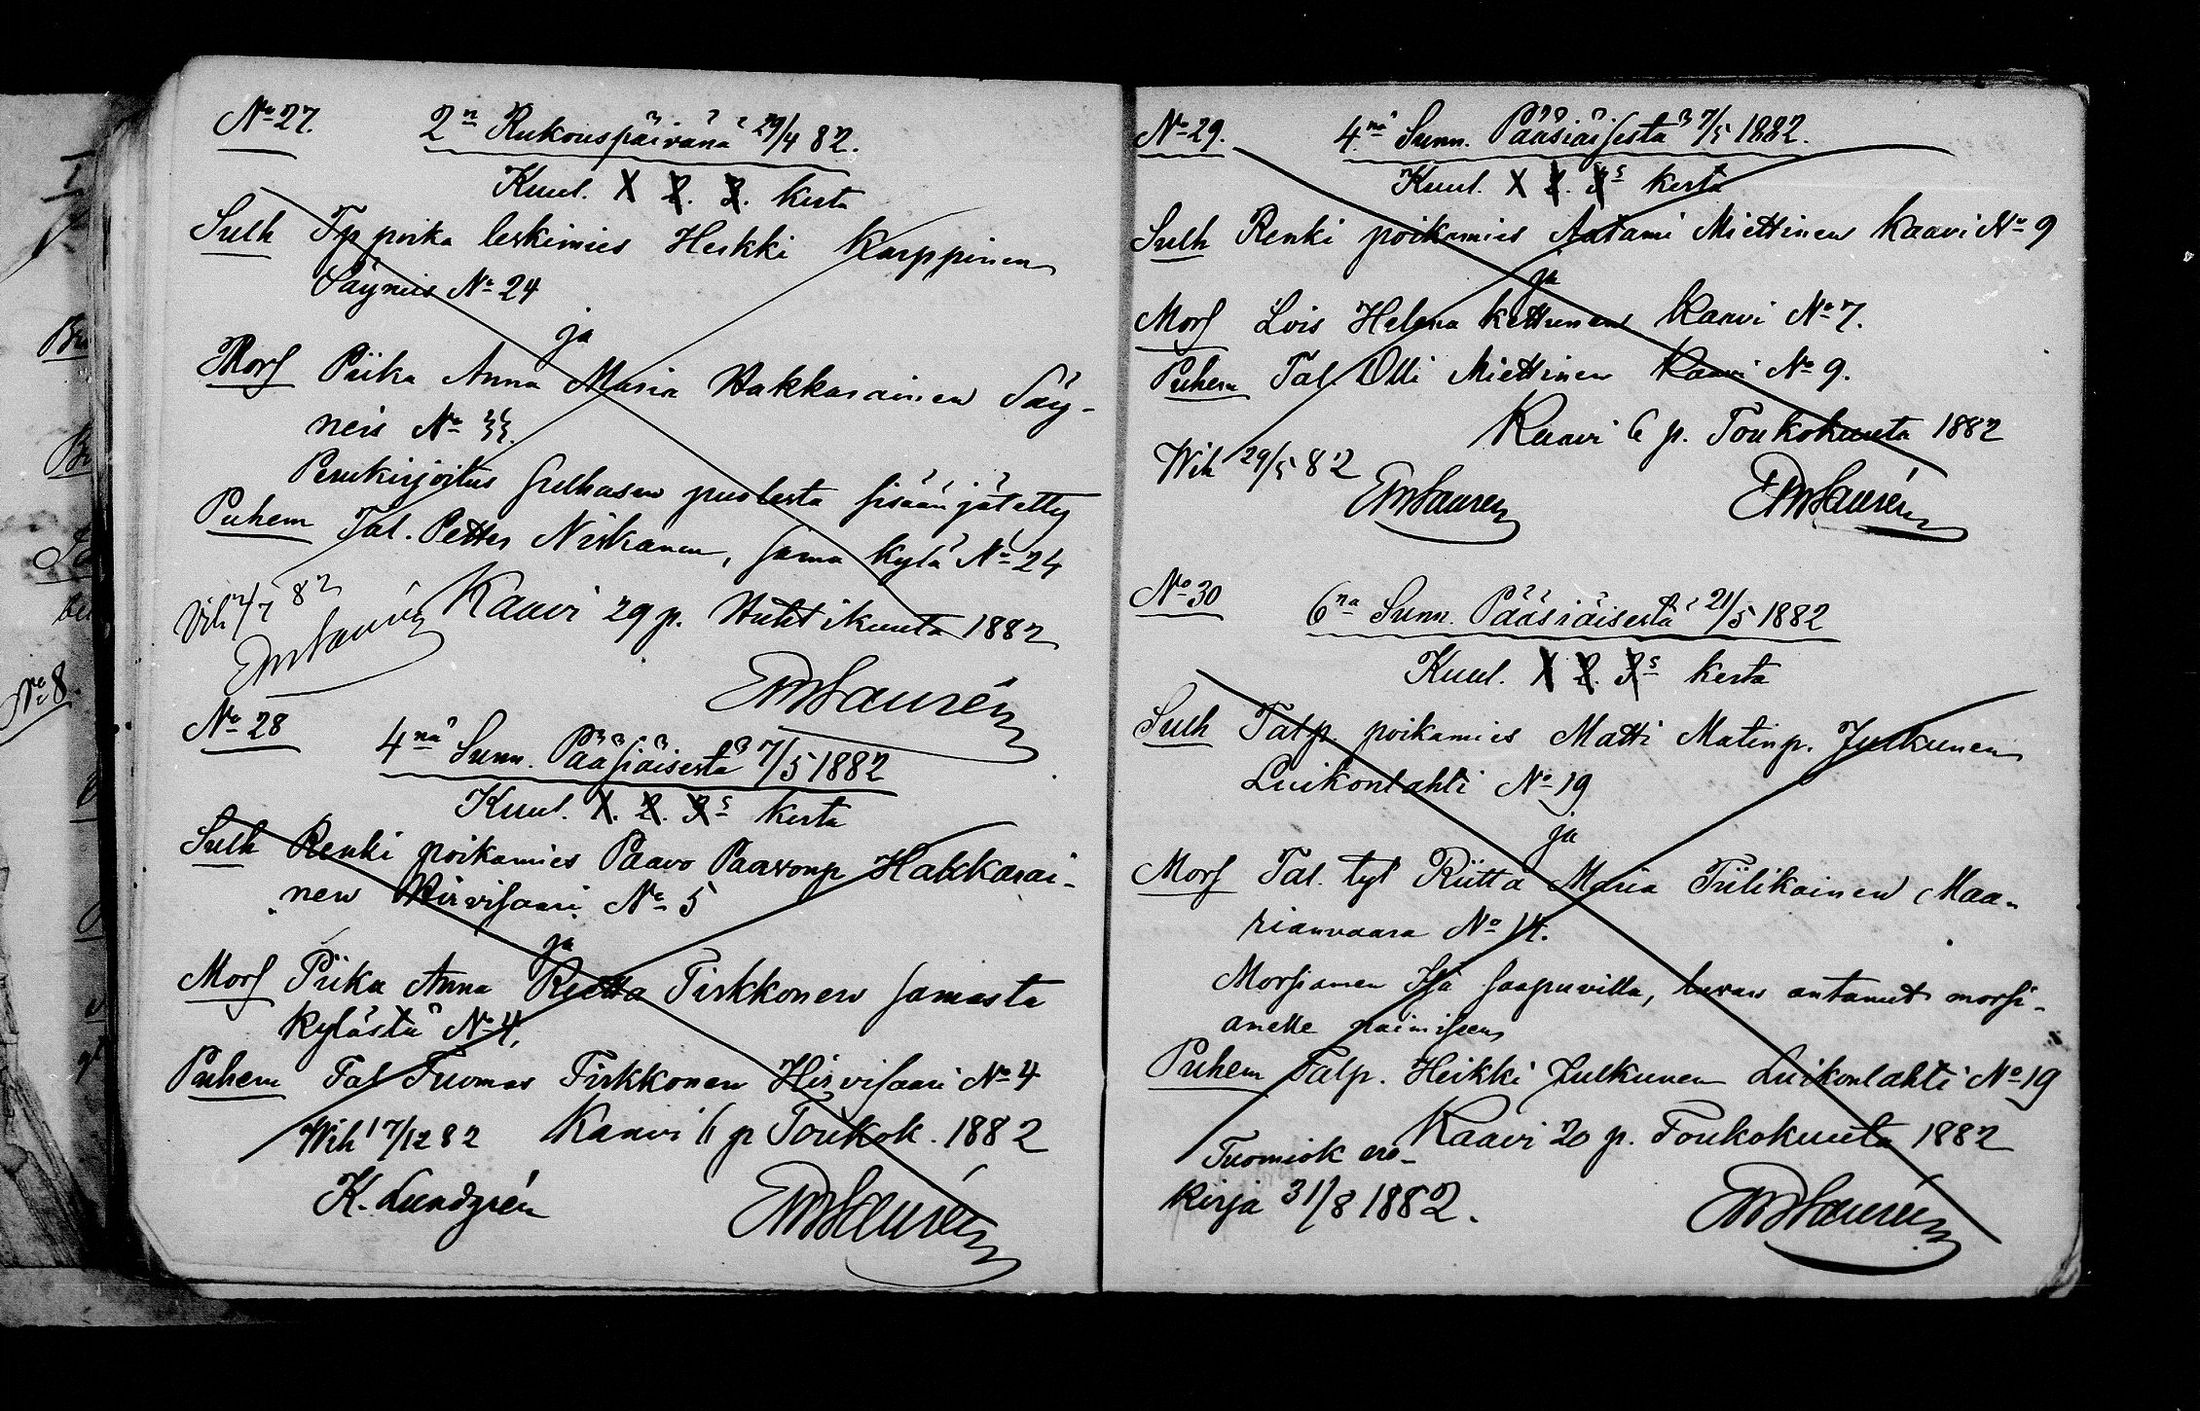 No 27.
2n Rukouspäivänä 29/4 82.
Kuul. X 2. 3. kerta
Sulh Tp poika leskimies Heikki Karppinen
Säyneis No 24
ja
Mors Piika Anna Maria Hakkarainen Säy-
neis No 33.
Perukirjoitus sulhasen puolesta sisäänjätetty
Puhem Tal. Petter Niskanen, sama kylä No 24
Vih 2/7 82 Kaavi 29 p. Huhtikuuta 1882
EMSaurén
EMSaurén
No 28
4nä Sunn. Pääsiäisestä 7/5 1882
Kuul. X. 2. 3s kerta
Sulh Renki poikamies Paavo Paavonp Hakkarai-
nen Hirvisaari No 5
ja
Mors Piika Anna Reetta Tirkkonen samasta
kylästä No 4,
Puhem Tal Tuomas Tirkkonen Hirvisaari No 4
Wih 17/12 82 Kaavi 6 p Toukok. 1882
K. Lundgrén EMSaurén
No 29.
4nä Sunn. Pääsiäisestä 7/5 1882.
Kuul. X 2. 3s kerta
Sulh Renki poikamies Aatami Miettinen Kaavi No 9
ja
Mors Lois Helena Kettunen Kaavi No 7.
Puhem Tal. Olli Miettinen Kaavi No 9.
Kaavi 6 p. Toukokuuta 1882
Wih 29/5 82
EMSaurén EMSaurén
No 30
6na Sunn. Pääsiäisestä 21/5 1882
Kuul. X 2. 3s kerta
Sulh Talp. poikamies Matti Matinp. Julkunen
Luikonlahti No 19
ja
Mors Tal. tyt Riitta Maria Tiilikainen Maa-
rianvaara No 14.
Morsiamen Isä saapuvilla, luvan antanut morsi-
amelle naimiseen
Puhem Talp. Heikki Julkunen Luikonlahti No 19
Kaavi 20 p. Toukokuuta 1882
Tuomiok ero-
kirja 31/8 1882.
EMSaurén
No 8.